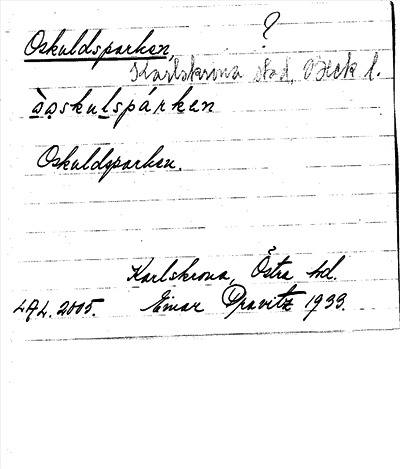 ?
Oskuldsparken,
Karlskrona stad, Bleck l.
òskulspárken
Oskuldsparken.
Karlskrona, Östra hd.
LAL. 2005. Einar Pravitz 1933.